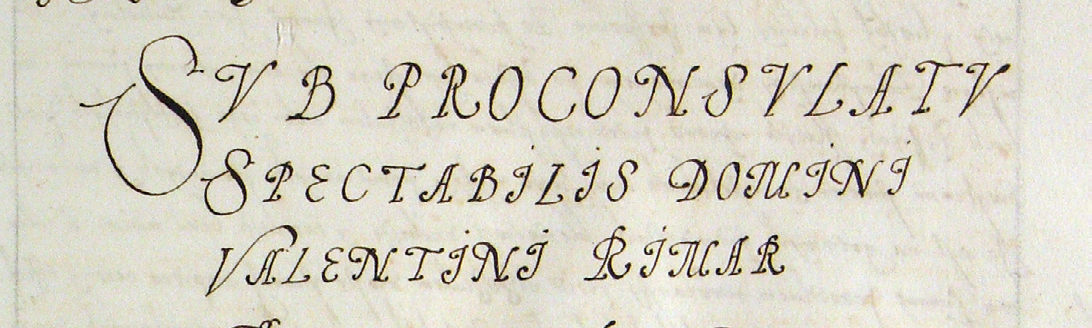 SVB PROCONSVLATV
SPECTABILIS DOMINI
VALENTINI RIMAR